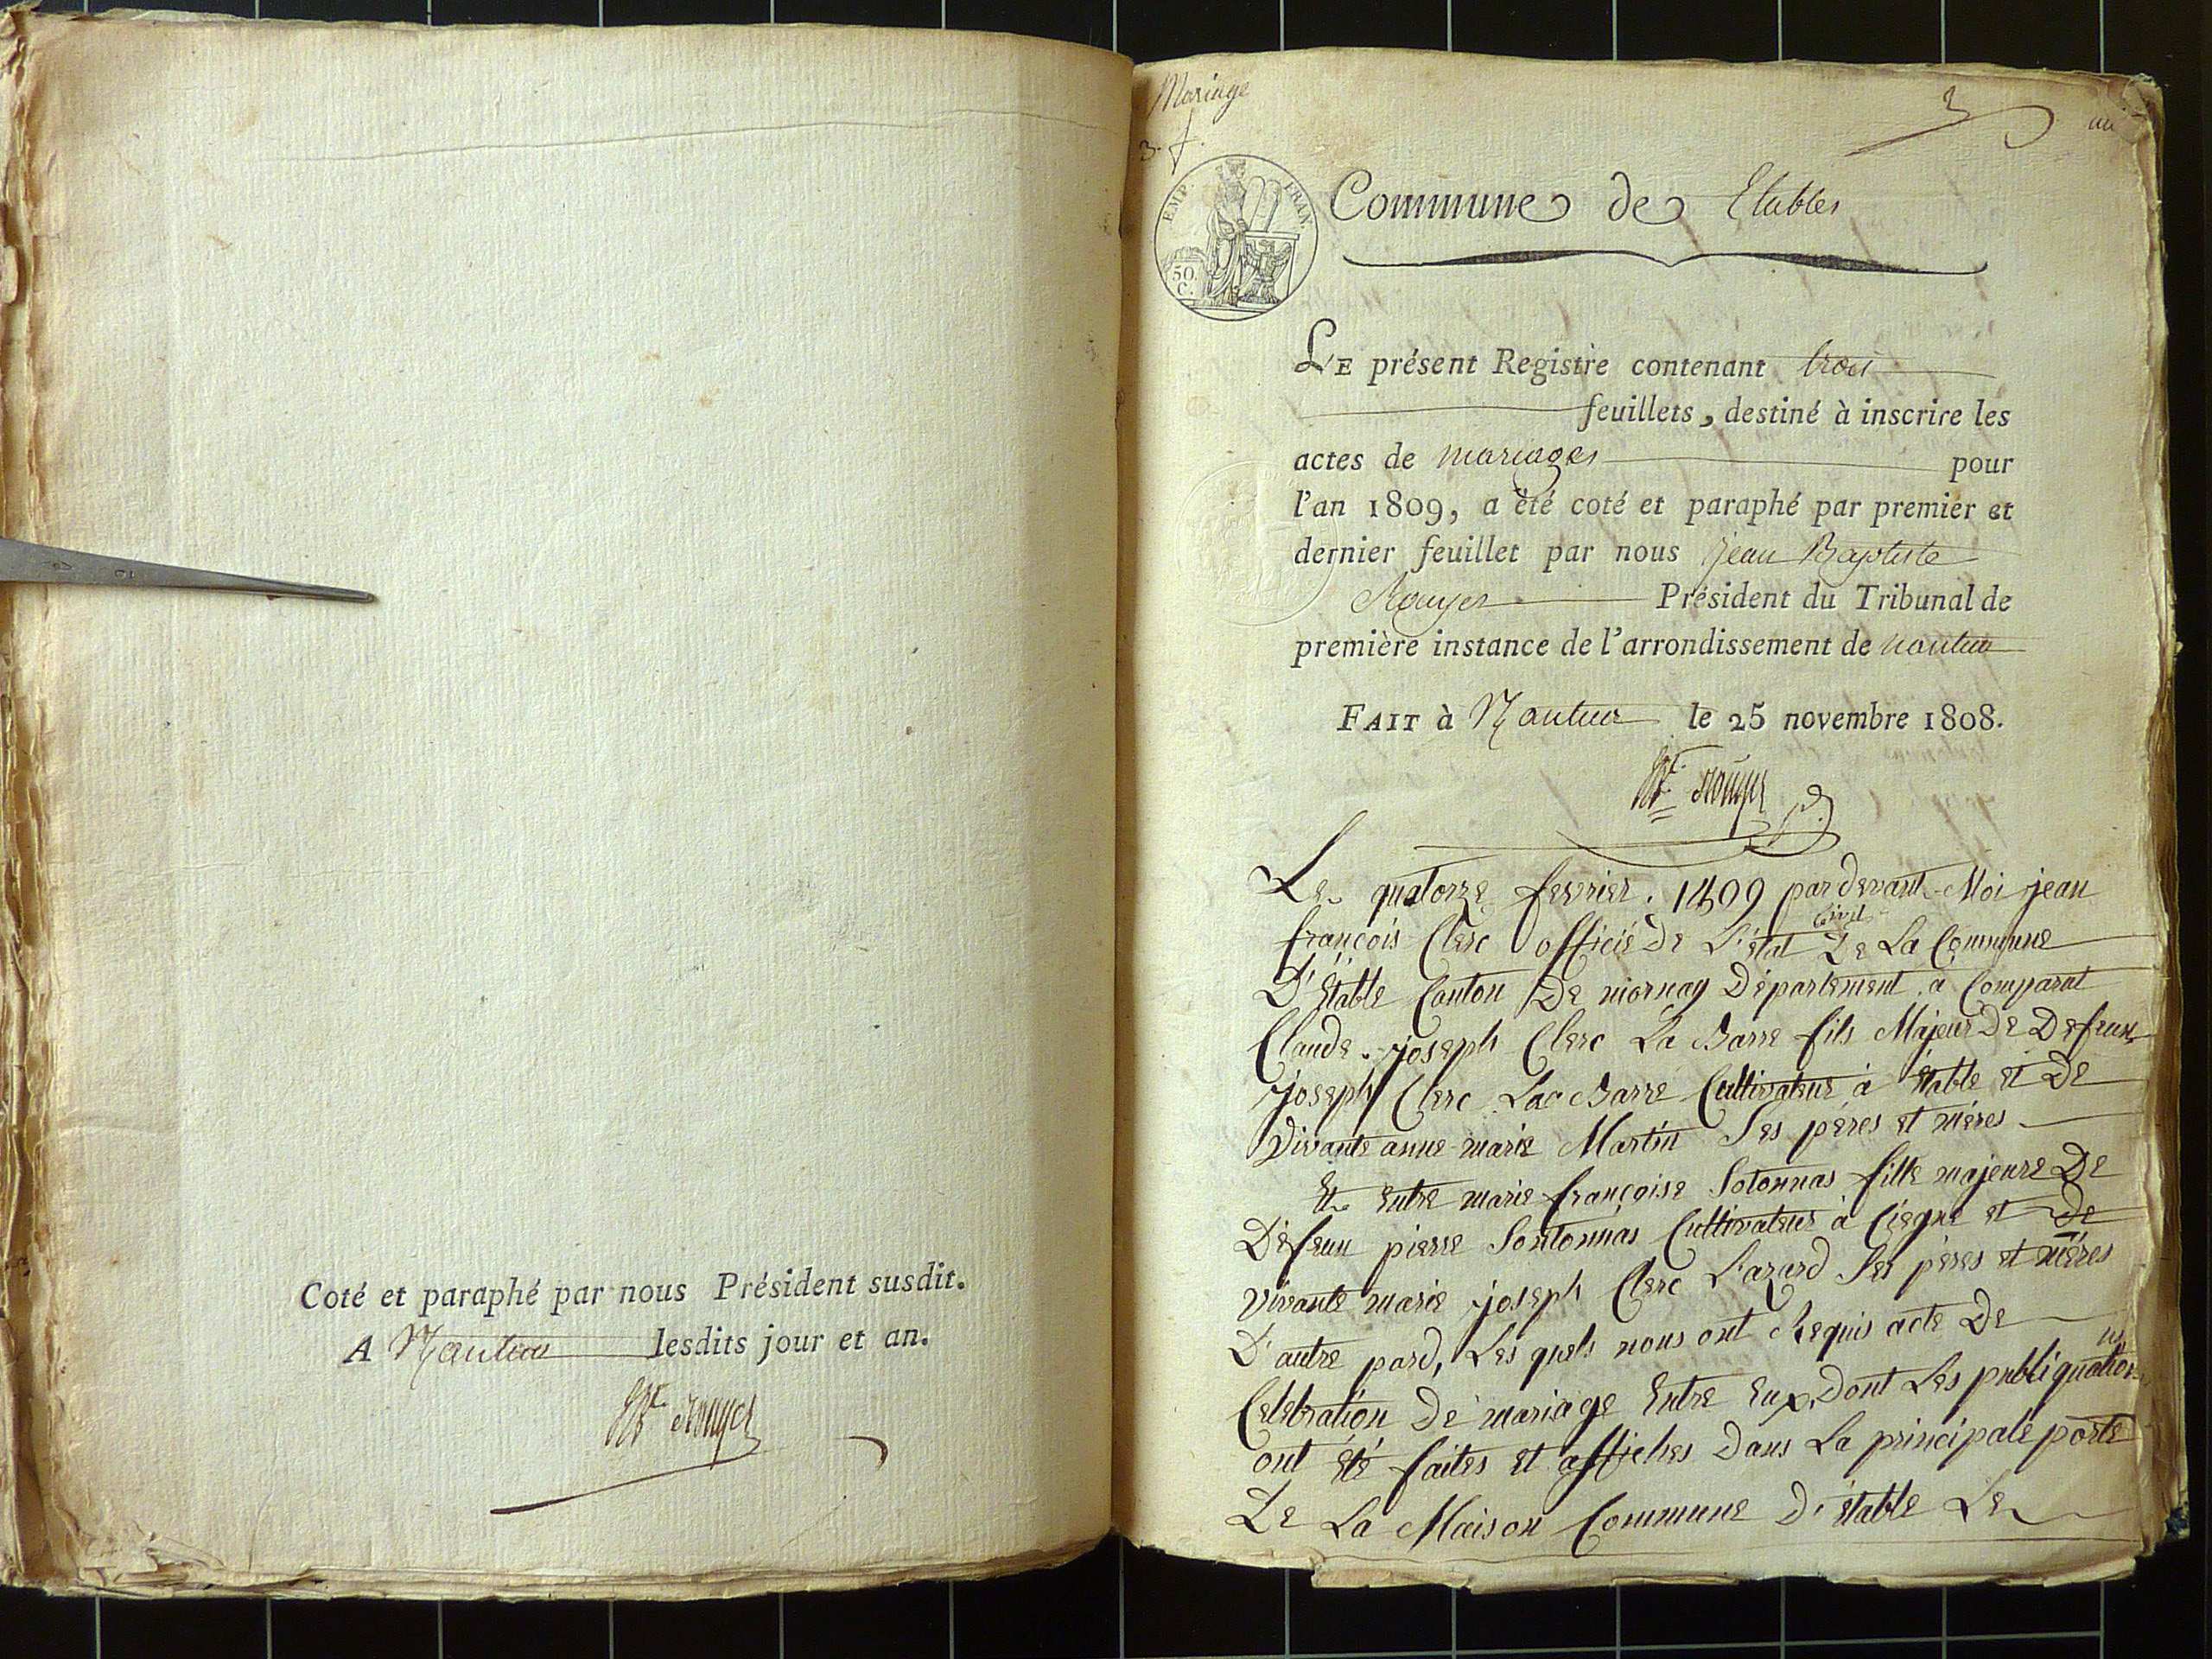 Coté et paraphé par nous Président susdit.
A Nantua lesdits jour et an.
Bte Rouyer
Mariage
3. f.
3
un
EMP. FRAN.
50. C.
Commune de Etables
LE présent Registre contenant trois
feuillets, destiné à inscrire les
actes de mariages pour
l'an 1809, a été coté et paraphé par premier et
dernier feuillet par nous jean Baptiste
Rouyer Président du Tribunal de
première instance de l'arrondissement de nantua
FAIT à Nantua le 25 novembre 1808.
Bte rouyer
Le quatorze fevrier. 1809 pardevant Moi jean
françois Clerc officié De L'état Civil De La Commune
D'Etable Canton De mornay Département a Comparut
Claude joseph Clerc La Barre fils Majeur De Defeun
joseph Clerc La Barre Cultivateur à Etable et De
Vivante anne marie Martin Ses péres et méres
Et Entre marie françoise Sotonnas fille majeure De
Défeun pierre Sontonnas Cultivateur à Ciegne et De
Vivante marie joseph Clerc Lazard Ses péres et méres
D'autre pard, Les quels nous ont Requis acte De
Celebration De mariage Entre Eux, Dont Les publiquations
ont été faites et affiches Dans La principale porte
De La Maison Commune D'étable Le